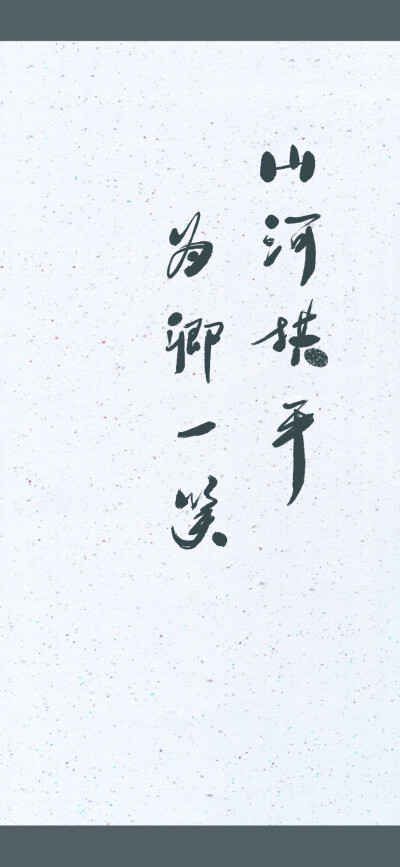 山河拱平
为卿一笑